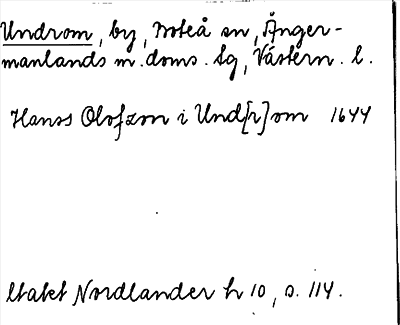 Undrom, by, Boteå sn, Ånger-
manlands m. doms. tg, Västern. l.
Hanss Olofzon i Und[r]om 1644
ltatet Nordlander h 10, s. 114.